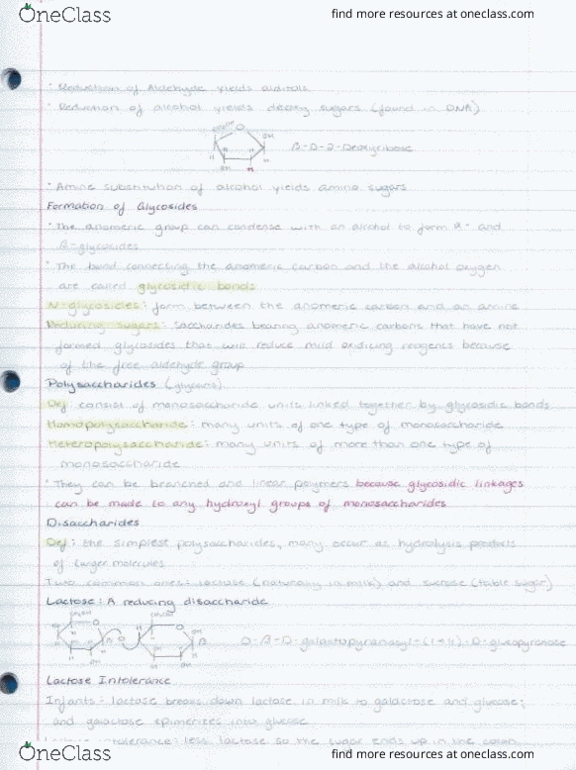 OneClass find more resources at oneclass.com
· Reduction of Aldehyde yields alditols
· Reduction of alcohol yields deoxy sugars (found in DNA)
β-D-2-Deoxyribose
· Amine substitution of alcohol yields amino sugars
Formation of Glycosides
· The anomeric group can condense with an alcohol to form α- and
β-glycosides
· The bond connecting the anomeric carbon and the alcohol oxygen
are called glycosidic bonds
N-glycosides: form between the anomeric carbon and an amine
Reducing sugars: Saccharides bearing anomeric carbons that have not
formed glycosides that will reduce mild oxidizing reagents because
of the free aldehyde group
Polysaccharides (glycans)
Def: consist of monosaccharide units linked together by glycosidic bonds
Homopolysaccharide: many units of one type of monosaccharide
Heteropolysaccharide: many units of more than one type of
monosaccharide
· They can be branched and linear polymers because glycosidic linkages
can be made to any hydroxyl groups of monosaccharides
Disaccharides
Def: the simplest polysaccharides, many occur as hydrolysis products
of larger molecules
Two common ones: lactose (naturally in milk) and sucrose (table sugar)
Lactose: A reducing disaccharide
O-β-D-galactopyranosyl-(1→4)-D-glucopyranose
Lactose Intolerance
Infants: lactase breaks down lactose in milk to galactose and glucose;
and galactose epimerizes into glucose
intolerance: less lactase so the sugar ends up in the colon
OneClass find more resources at oneclass.com